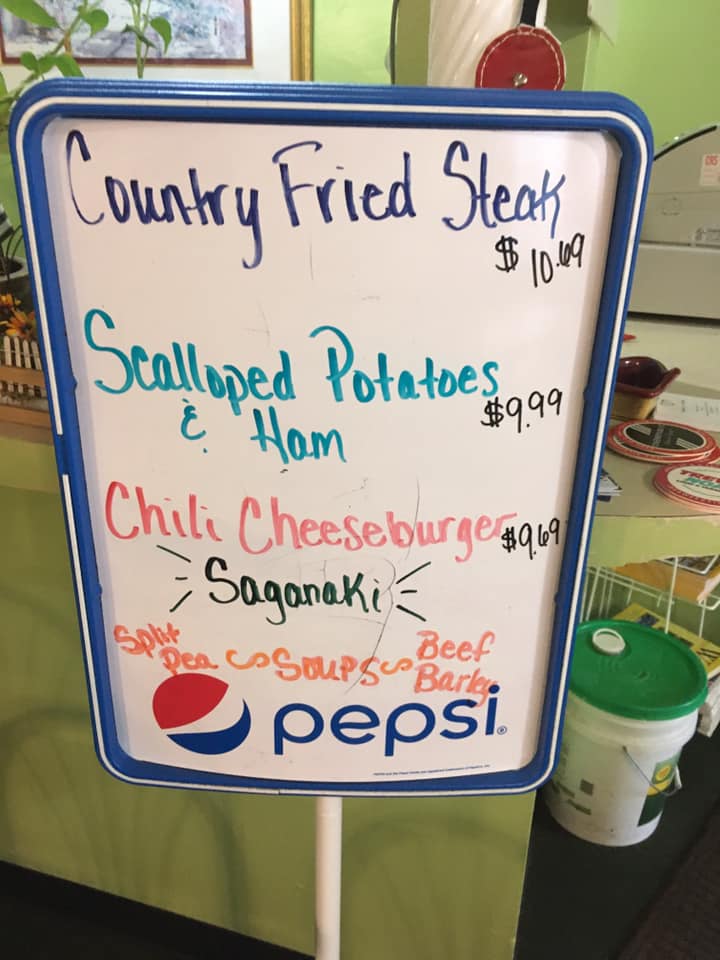 Country Fried Steak
$10.69
Scalloped Potatoes
& Ham
$9.99
Chili Cheeseburger $9.69
Saganaki
Split Pea Soups Beef Barley
pepsi